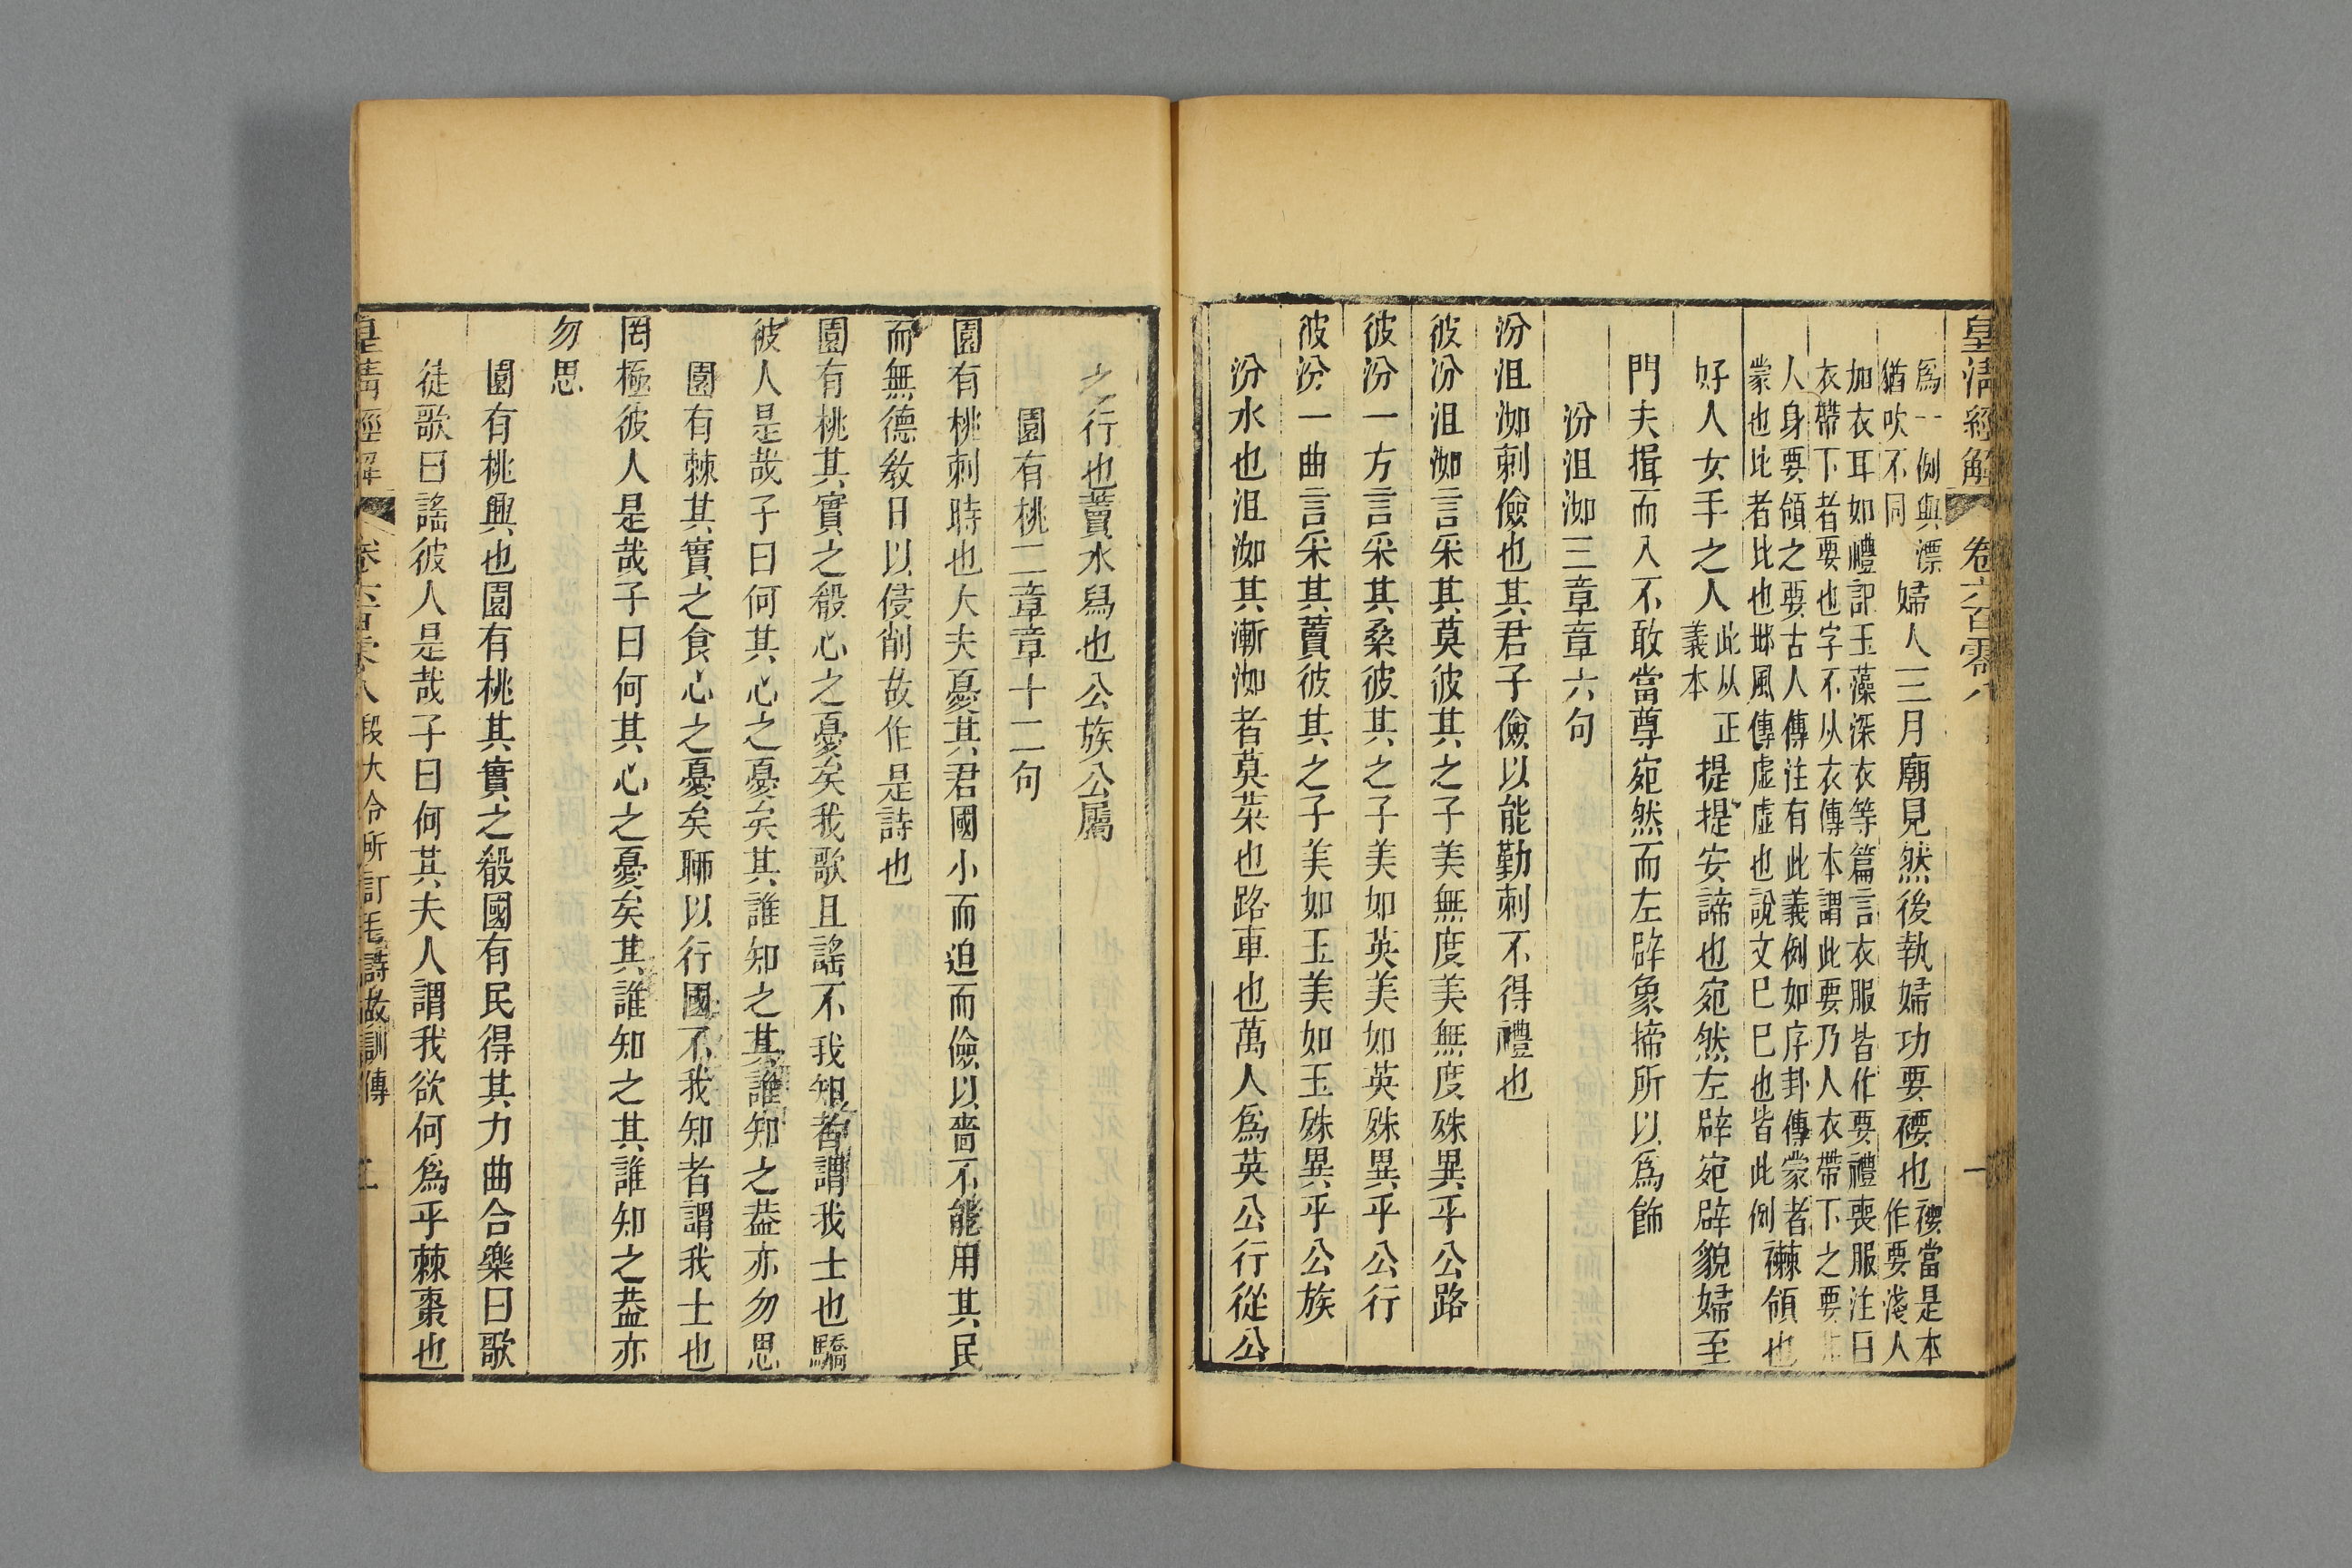 皇清經解 卷六百零八 一
爲一例與漂
猶吹不同
婦人三月廟見然後執婦功要褄也
褄當是本
作要淺人
加衣耳如禮記玉藻深衣等篇言衣服皆作要禮喪服注曰
衣帶下者要也字不从衣傳本謂此要乃人衣帶下之要
人身要領之要古人傳注有此義例如序卦傳蒙者
蒙也比者比也邶風傳虛虛也說文巳巳也皆此例
襋領也
好人女手之人
此从正
義本
提提安諦也宛然左辟宛辟貌婦至
門夫揖而入不敢當尊宛然而左辟象揥所以爲飾
汾沮洳三章章六句
汾沮洳刺儉也其君子儉以能勤刺不得禮也
彼汾沮洳言采其莫彼其之子美無度美無度殊異乎公路
彼汾一方言采其桑彼其之子美如英美如英殊異乎公行
彼汾一曲言采其藚彼其之子美如玉美如玉殊異乎公族
汾水也沮洳其漸洳者莫菜也路車也萬人爲英公行從公
之行也藚水舄也公族公屬
園有桃二章章十二句
園有桃刺時也大夫憂其君國小而迫而儉以嗇不能用其民
而無德教日以侵削故作是詩也
園有桃其實之殽心之憂矣我歌且謠不我知者謂我士也驕
彼人是哉子曰何其心之憂矣其誰知之其誰知之蓋亦勿思
園有棘其實之食心之憂矣聊以行國不我知者謂我士也
罔極彼人是哉子曰何其心之憂矣其誰知之其誰知之蓋亦
勿思
園有桃興也園有桃其實之殽國有民得其力曲合樂曰歌
徒歌曰謠彼人是哉子曰何其夫人謂我欲何爲乎棘棗也
皇清經解 卷六百零八 段大令所訂毛詩故訓傳 二